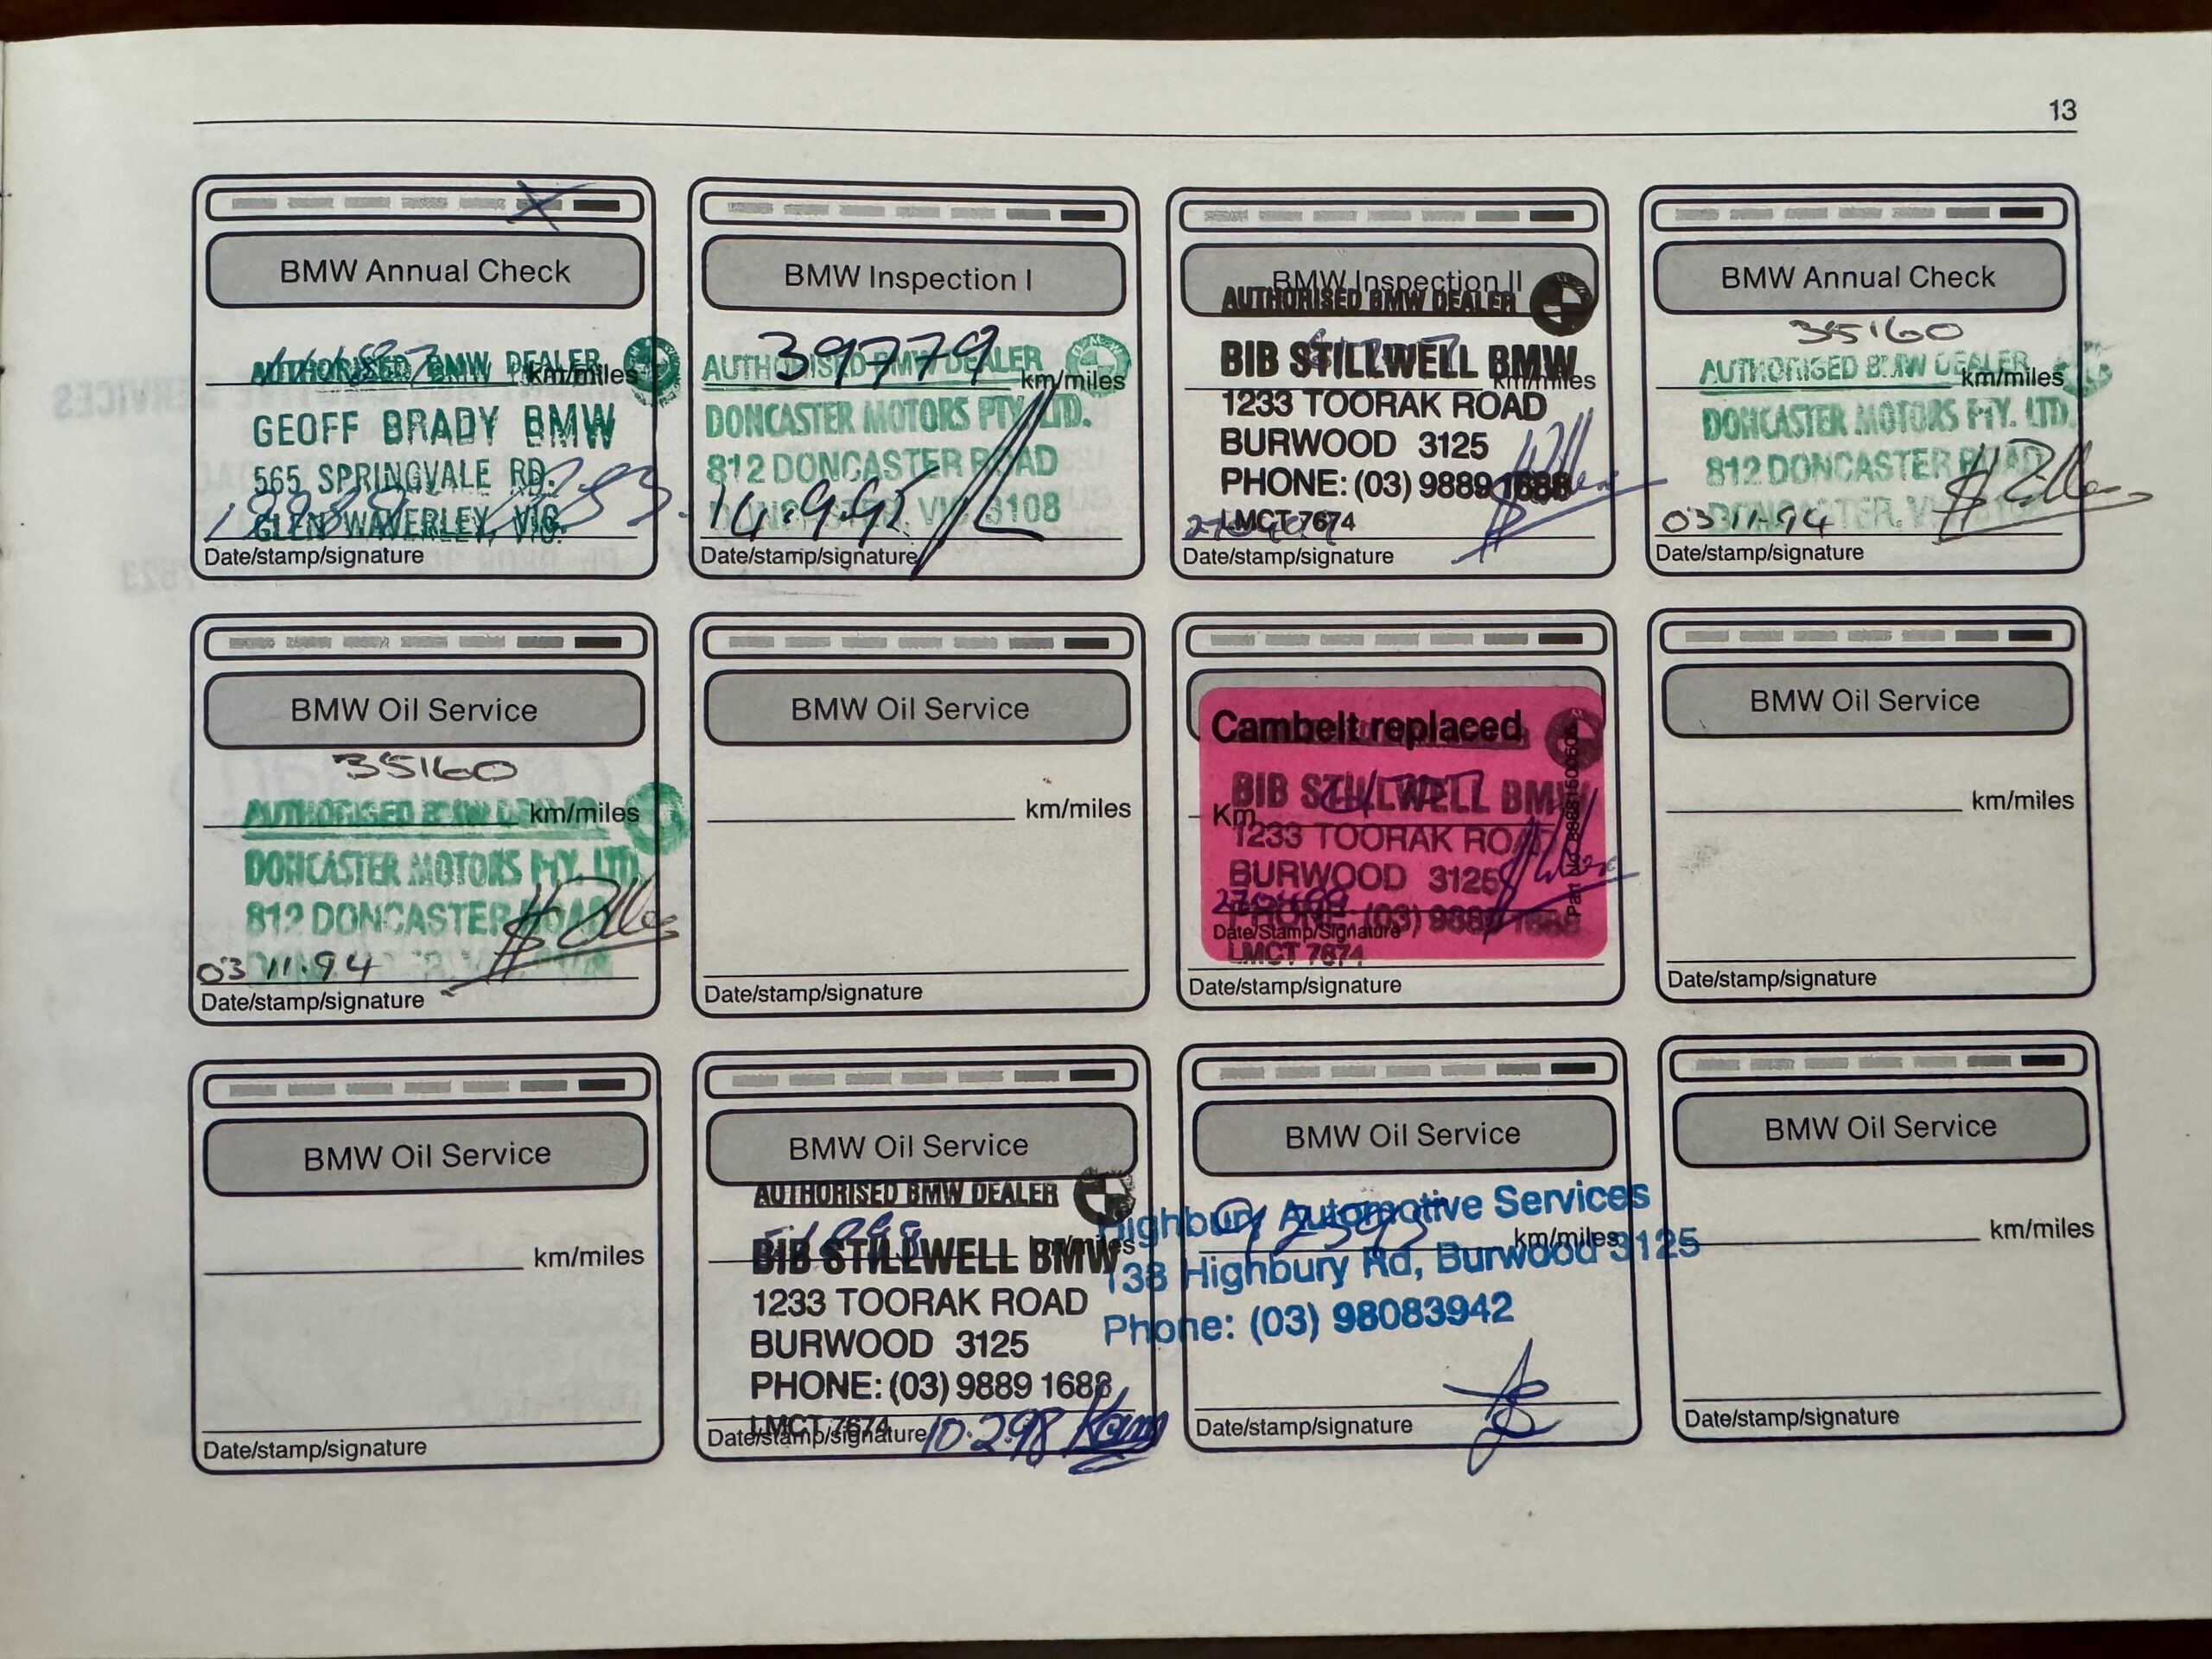 13
BMW Annual Check
AUTHORISED BMW DEALER
km/miles
GEOFF BRADY BMW
565 SPRINGVALE RD.
GLEN WAVERLEY, VIC.
Date/stamp/signature
BMW Inspection I
39779
AUTHORISED BMW DEALER
km/miles
DONCASTER MOTORS PTY. LTD.
812 DONCASTER ROAD
DONCASTER, VIC. 3108
14.9.95
Date/stamp/signature
BMW Inspection II
AUTHORISED BMW DEALER
BIB STILLWELL BMW
km/miles
1233 TOORAK ROAD
BURWOOD 3125
PHONE: (03) 9889 1688
LMCT 7674
Date/stamp/signature
BMW Annual Check
35160
AUTHORISED BMW DEALER
km/miles
DONCASTER MOTORS PTY. LTD.
812 DONCASTER ROAD
DONCASTER, VIC.
03 11.94
Date/stamp/signature
BMW Oil Service
35160
AUTHORISED BMW DEALER
km/miles
DONCASTER MOTORS PTY. LTD
812 DONCASTER ROAD
03 11.94
Date/stamp/signature
BMW Oil Service
km/miles
Date/stamp/signature
Cambelt replaced
BIB STILLWELL BMW
Km
1233 TOORAK ROAD
BURWOOD 3125
PHONE: (03) 9889 1688
Date/Stamp/Signature
LMCT 7674
Date/stamp/signature
BMW Oil Service
km/miles
Date/stamp/signature
BMW Oil Service
km/miles
Date/stamp/signature
BMW Oil Service
AUTHORISED BMW DEALER
BIB STILLWELL BMW
1233 TOORAK ROAD
BURWOOD 3125
PHONE: (03) 9889 1688
LMCT 7674
Date/stamp/signature 10.2.98
BMW Oil Service
Highbury Automotive Services
km/miles
138 Highbury Rd, Burwood 3125
Phone: (03) 98083942
Date/stamp/signature
BMW Oil Service
km/miles
Date/stamp/signature